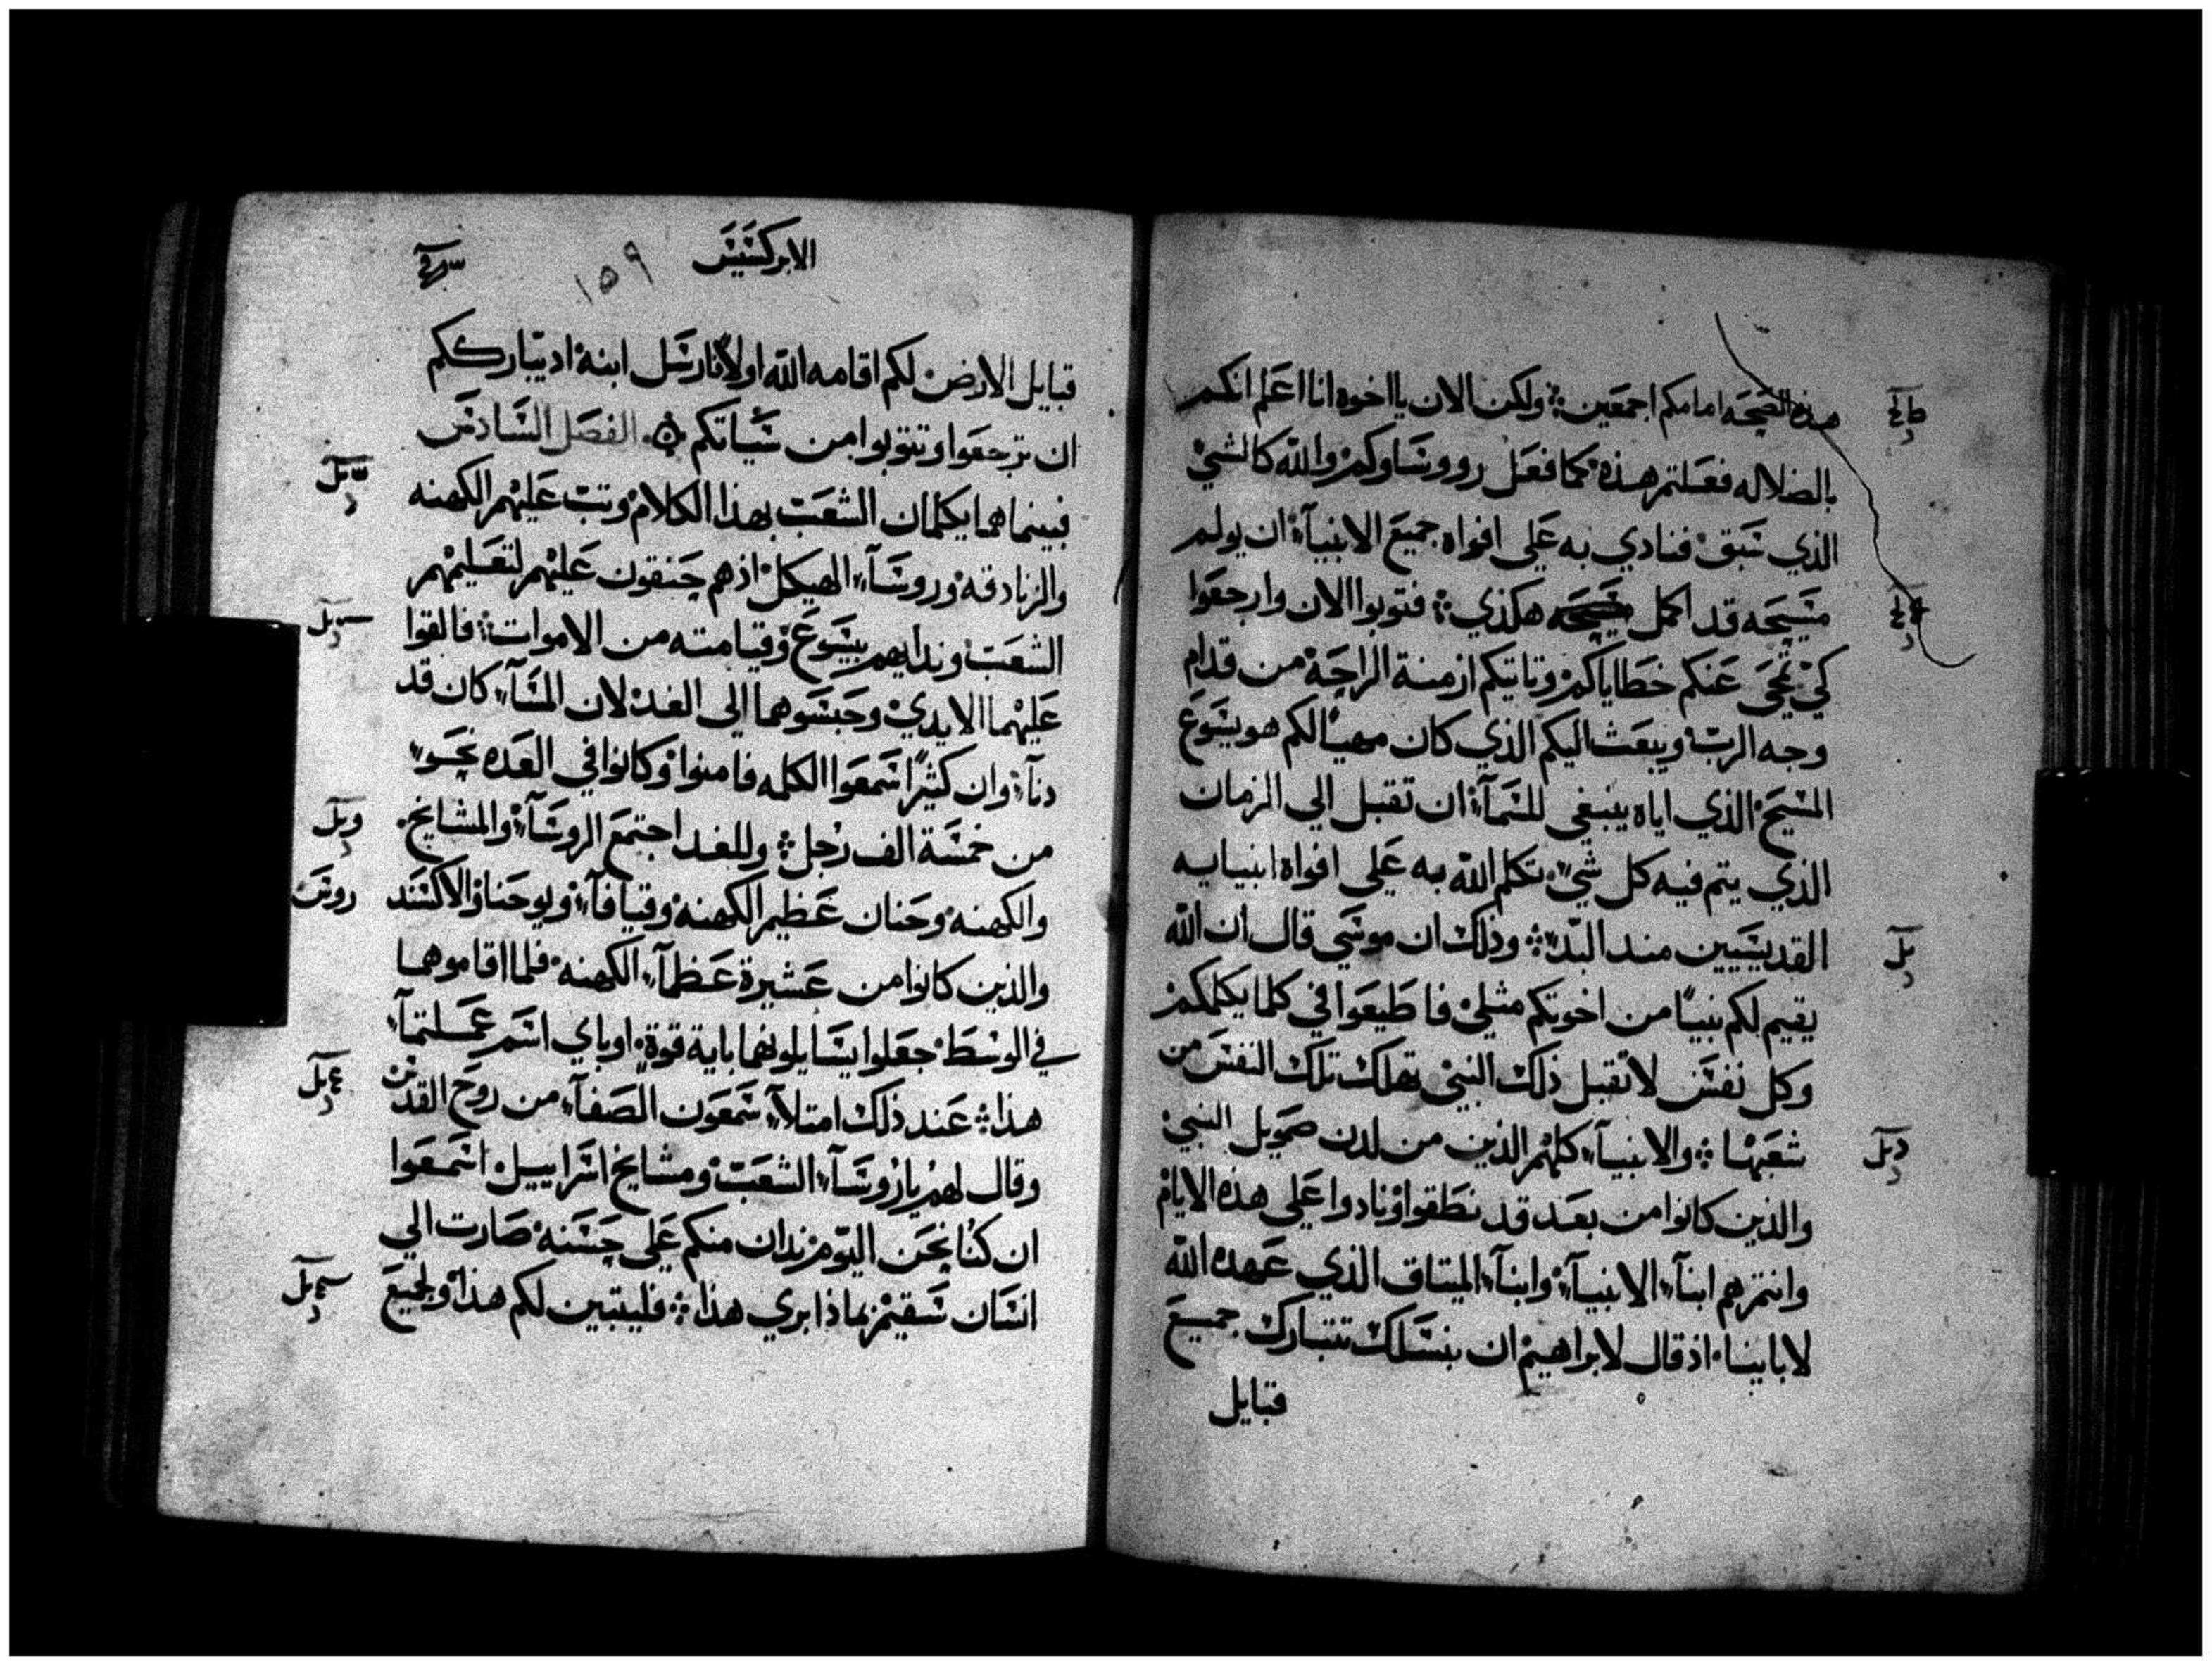 هذه الصحه امامكم اجمعين ولكن الان يا اخوه انا اعلم انكم
بالضلاله فعلتم هذه كما فعل رووساوكم والله كالشي
الذي سبق فنادي به علي افواه جميع الانبيآء ان يولم
مسيحه قد اكمل هكذي فتوبوا الان وارجعوا
كي تمحي عنكم خطاياكم وتاتيكم ازمنة الراحة من قدام
وجه الرب ويبعث اليكم الذي كان مهيئا لكم هو يسوع
المسيح الذي اياه ينبغي للسمآء ان تقبل الي الزمان
الذي يتم فيه كل شيء تكلم الله به علي افواه انبيايه
القديسيين منذ البدء وذلك ان موسي قال ان الله
يقيم لكم نبيًا من اخوتكم مثلي فاطيعوا في كلما يكلمكم
وكل نفس لا تقبل ذلك النبي تهلك تلك النفس من
شعبها والانبيآء كلهم الذين من لدن صمويل النبي
والذين كانوا من بعد قد نطقوا ونادوا علي هذه الايام
وانتم هم ابنآء الانبيآء وابنآء الميتاق الذي عهده الله
لاباينا اذ قال لابراهيم ان بنسلك تتبارك جميع
قبايل
الابركسيس
١٥٩
قبايل الارض لكم اقامه الله اولا وارسل ابنه اذ يبارككم
ان ترجعوا وتتوبوا من سيأتكم الفصل السادس
فبينما هما يكلمان الشعب بهذا الكلام وتب عليهم الكهنه
والزنادقه وروسآء الهيكل اذ هم حنقون عليهم لتعليمهم
الشعب وندايهم بيسوع وقيامته من الاموات فالقوا
عليهما الايدي وحبسوهما الي الغد لان المسآء كان قد
دنآ وان كثيرًا سمعوا الكلمه فامنوا وكانوا في العده نحو
من خمسة الف رجل وللغد اجتمع الروسآء والمشايخ
والكهنه وحنان عظيم الكهنه وقيافآ ويوحنا والاكسند
روس
والذين كانوا من عشيرة عظمآء الكهنه فلما اقاموهما
في الوسط جعلوا يسايلونهما باية قوة او باي اسم عملتمآ
هذا عند ذلك امتلآء سمعون الصفآء من روح القدس
وقال لهم يا روسآء الشعب ومشايخ اسراييل اسمعوا
ان كنا نحن اليوم ندان منكم علي حسنه صارت الي
انسان سقيم بماذا ابري هذا فليتبين لكم هذا ولجميع